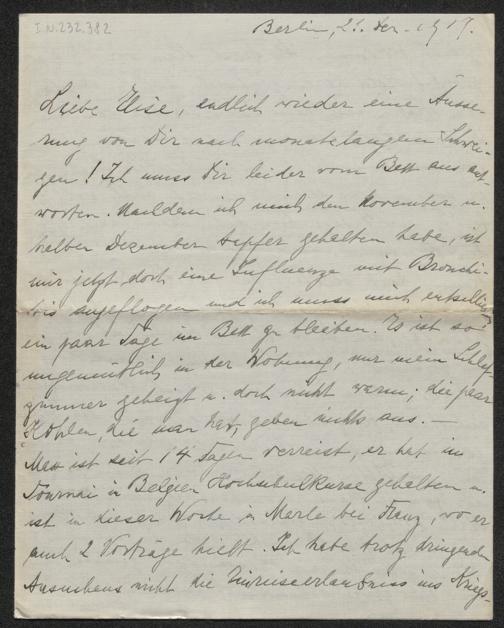 I.N. 232.382
Berlin, 21. Dez. 1917.
Liebe Elise, endlich wieder eine Äusse-
rung von Dir nach monatelangem Schwei-
gen! Ich muss Dir leider vom Bett aus ant-
worten. Nachdem ich mich den November u.
halben Dezember tapfer gehalten habe, ist
mir jetzt doch eine Influenza mit Bronchi-
tis angeflogen und ich muss mich entschließen
ein paar Tage im Bett zu bleiben. Es ist so
ungemütlich in der Wohnung, nur mein Schlaf-
zimmer geheizt u. doch nicht warm; die paar
Kohlen, die man hat, geben nichts aus. —
Max ist seit 14 Tagen verreist, er hat in
Tournai in Belgien Hochschulkurse gehalten u.
ist in dieser Woche in Marle bei Franz, wo er
auch 2 Vorträge hielt. Ich habe trotz dringenden
Ansuchens nicht die Einreiseerlaubniss ins Kriegs-